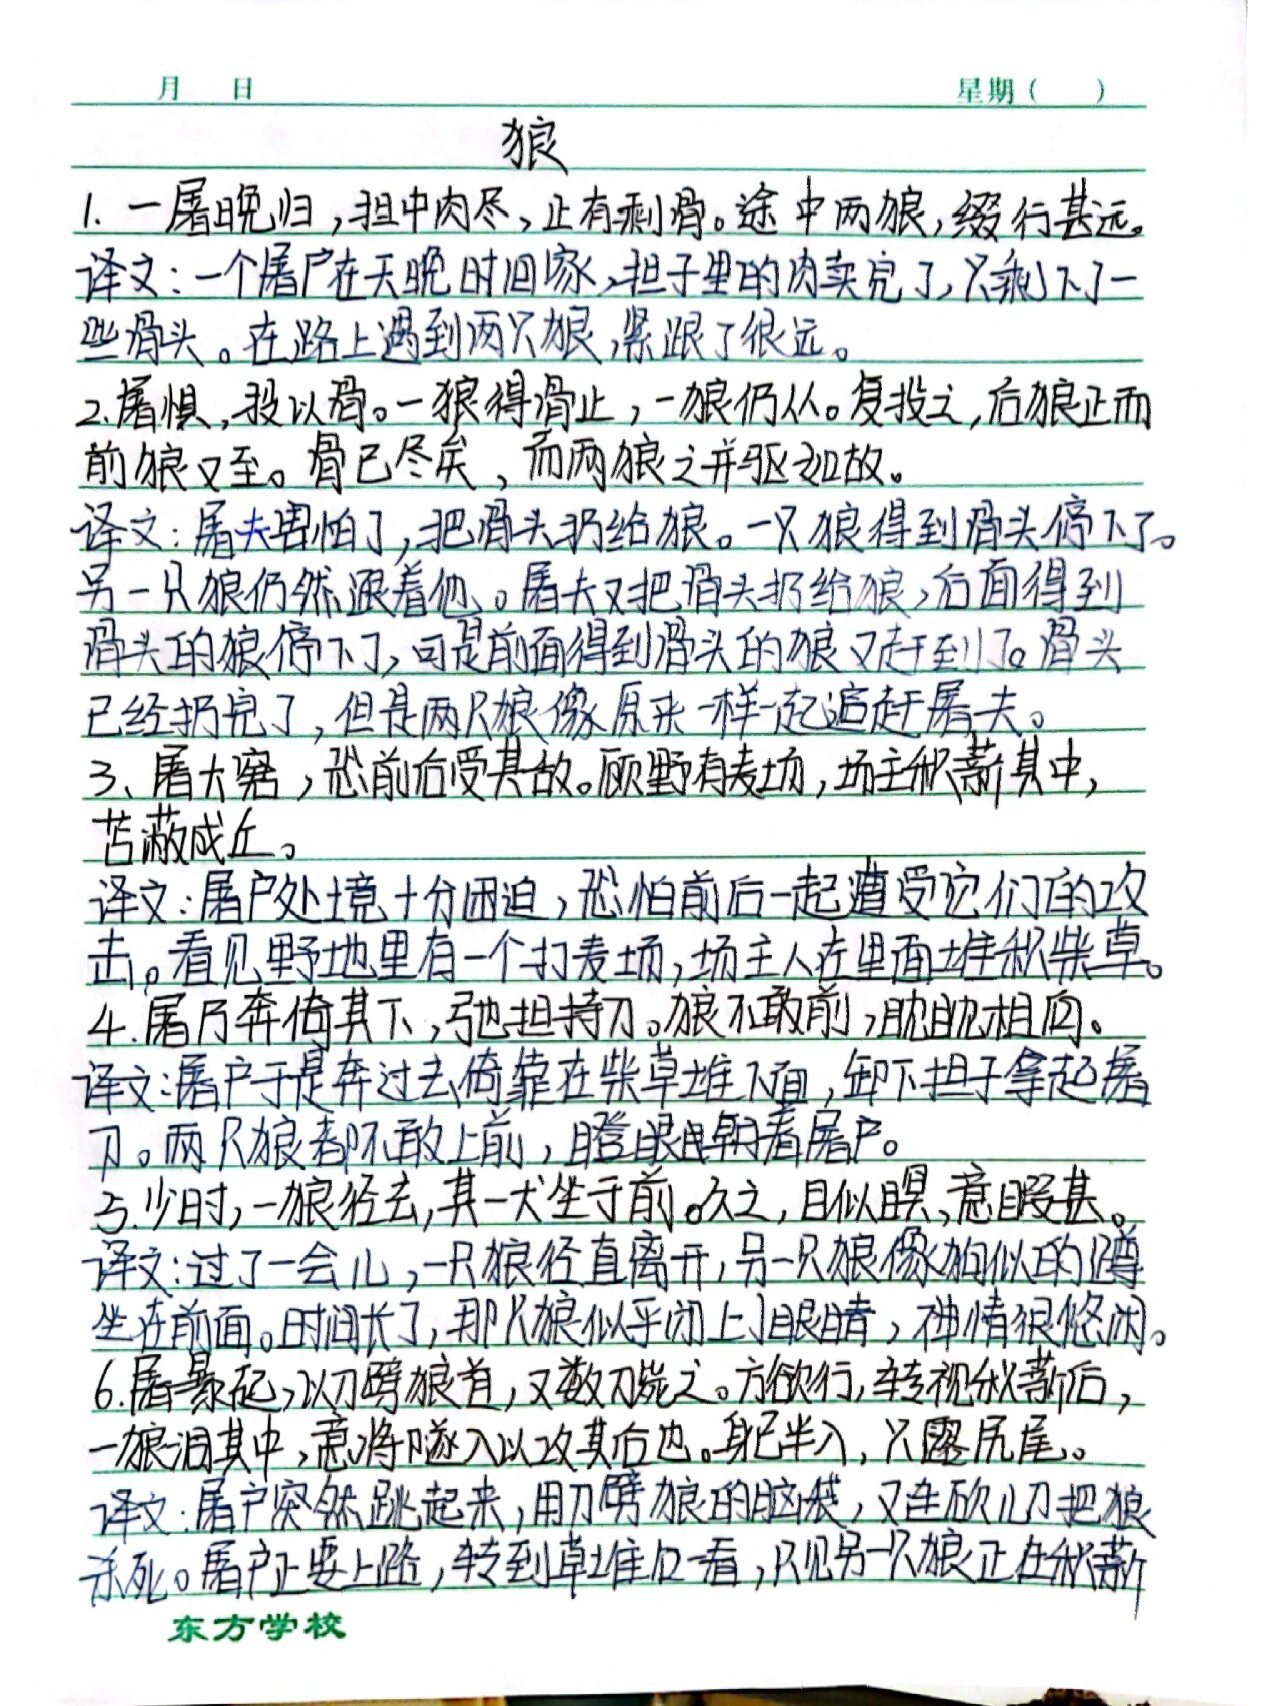 月 日 星期( )
狼
1. 一屠晚归,担中肉尽,止有剩骨。途中两狼,缀行甚远。
译文:一个屠户在天晚时回家,担子里的肉卖完了,只剩下了一
些骨头。在路上遇到两只狼,紧跟了很远。
2.屠惧,投以骨。一狼得骨止,一狼仍从。复投之,后狼止而
前狼又至。骨已尽矣,而两狼之并驱如故。
译文:屠夫害怕了,把骨头扔给狼。一只狼得到骨头停下了。
另一只狼仍然跟着他。屠夫又把骨头扔给狼,后面得到
骨头的狼停下了,可是前面得到骨头的狼又赶到了。骨头
已经扔完了,但是两只狼像原来一样一起追赶屠夫。
3、屠大窘,恐前后受其敌。顾野有麦场,场主积薪其中,
苫蔽成丘。
译文:屠户处境十分困迫,恐怕前后一起遭受它们的攻
击。看见野地里有一个打麦场,场主人在里面堆积柴草。
4.屠乃奔倚其下,弛担持刀。狼不敢前,眈眈相向。
译文:屠户于是奔过去倚靠在柴草堆下面,卸下担子拿起屠
刀。两只狼都不敢上前,瞪眼朝着屠户。
5.少时,一狼径去,其一犬坐于前。久之,目似瞑,意暇甚。
译文:过了一会儿,一只狼径直离开,另一只狼像狗似的蹲
坐在前面。时间长了,那只狼似乎闭上了眼睛,神情很悠闲。
6.屠暴起,以刀劈狼首,又数刀毙之。方欲行,转视积薪后,
一狼洞其中,意将隧入以攻其后也。身已半入,只露尻尾。
译文:屠户突然跳起来,用刀劈狼的脑袋,又连砍几刀把狼
杀死。屠户正要上路,转到草堆后一看,只见另一只狼正在积薪
东方学校